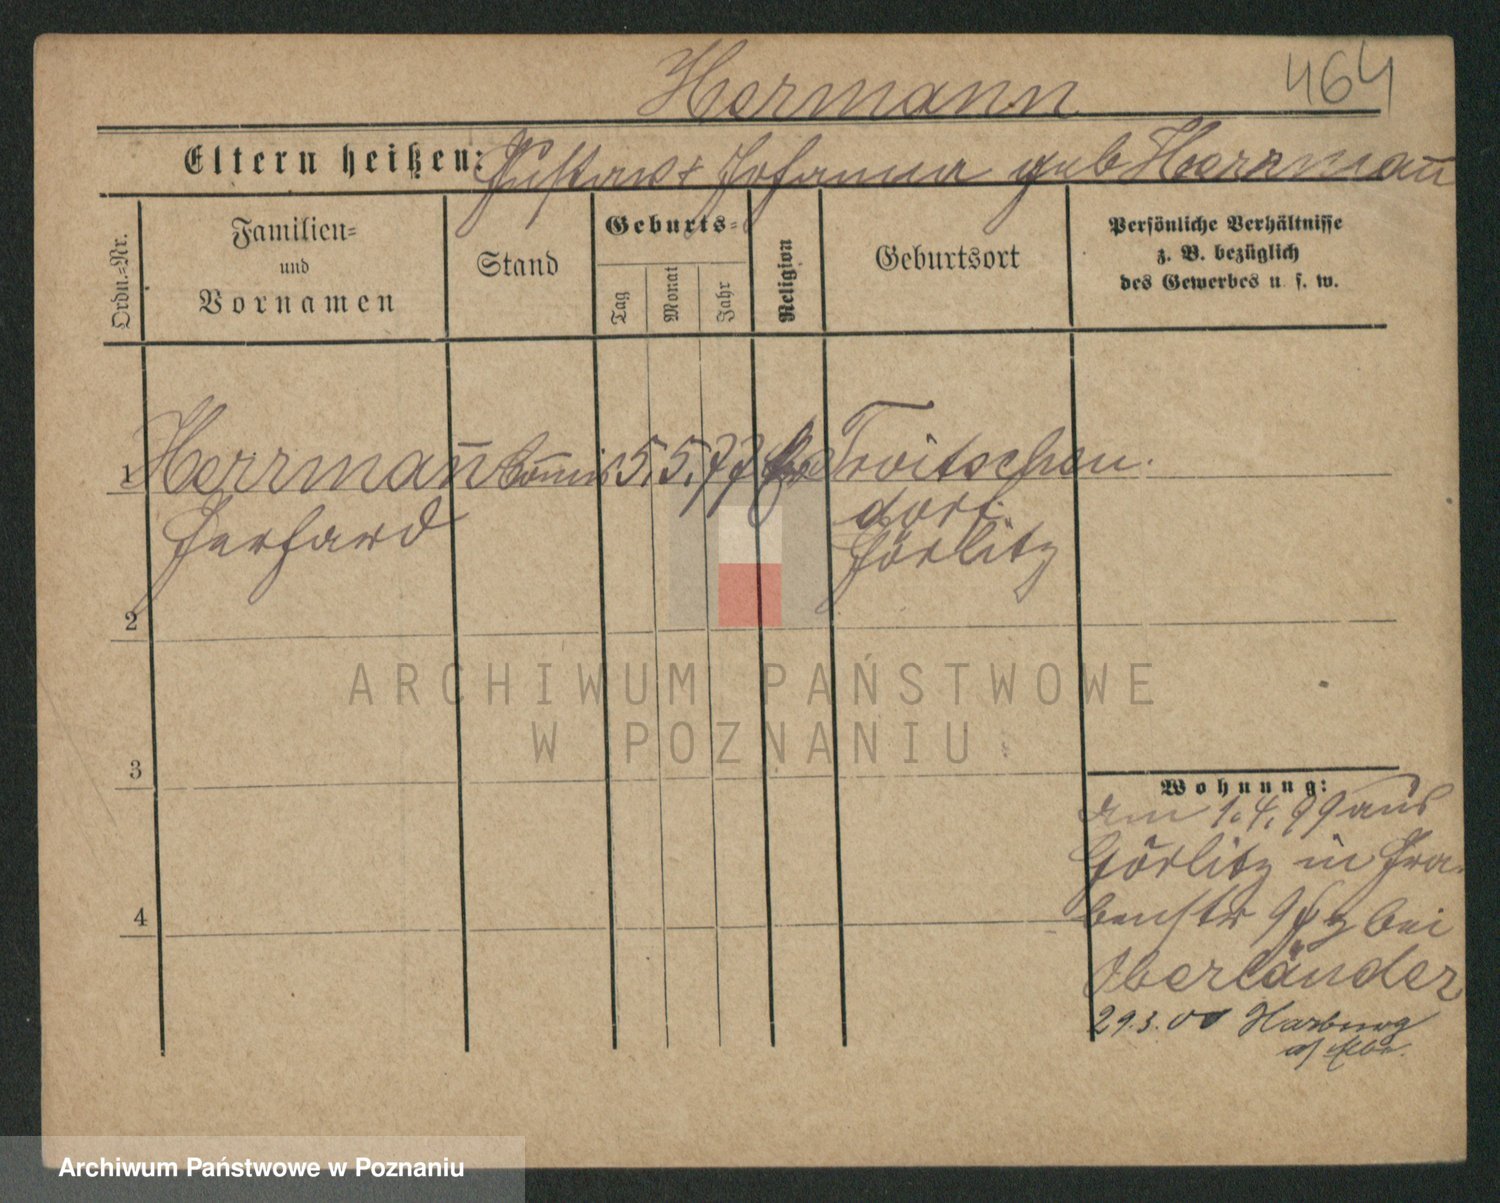 Hermann 464
Eltern heißen: Gustav + Johanna geb Herrmann̄
Ordn.=Nr.
Familien=
und
Vornamen
Stand
Geburts=
Tag
Monat
Jahr
Religion
Geburtsort
Persönliche Verhältnisse
z. B. bezüglich
des Gewerbes u. s. w.
1 Herrman̄ Com̄is 5. 5. 77 Troitschen
Gerhard dorf
Görlitz
2
3
4
Wohnung:
am 1. 4. 99 aus
Görlitz in Gra
benstr bei
Oberländer
29.3.00 Harburg
a/ Elbe.
ARCHIWUM PAŃSTWOWE
W POZNANIU
Archiwum Państwowe w Poznaniu